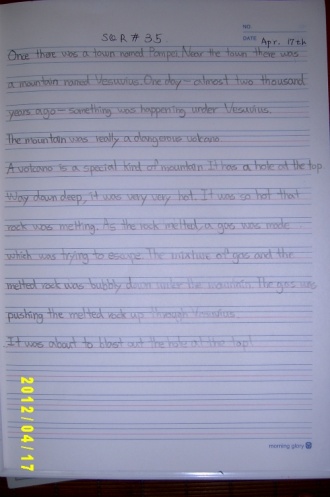 NO.
S&R # 35
DATE Apr. 17th
Once there was a town named Pompei. Near the town there was
a mountain named Vesuvius. One day - almost two thousand
years ago - something was happening under Vesuvius.
The mountain was really a dangerous volcano.
A volcano is a special kind of mountain. It has a hole at the top.
Way down deep, it was very very hot. It was so hot that
rock was melting. As the rock melted, a gas was made
which was trying to escape. The mixture of gas and the
melted rock was bubbly down under the mountain. The gas was
pushing the melted rock up through Vesuvius.
It was about to blast out the hole at the top!
2012/04/17
morning glory